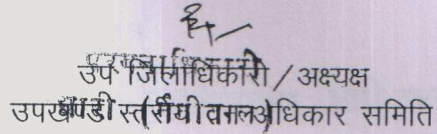 उप जिलाधिकारी / अक्ष्यक्ष
उपखण्ड स्तरीय अधिकार समिति